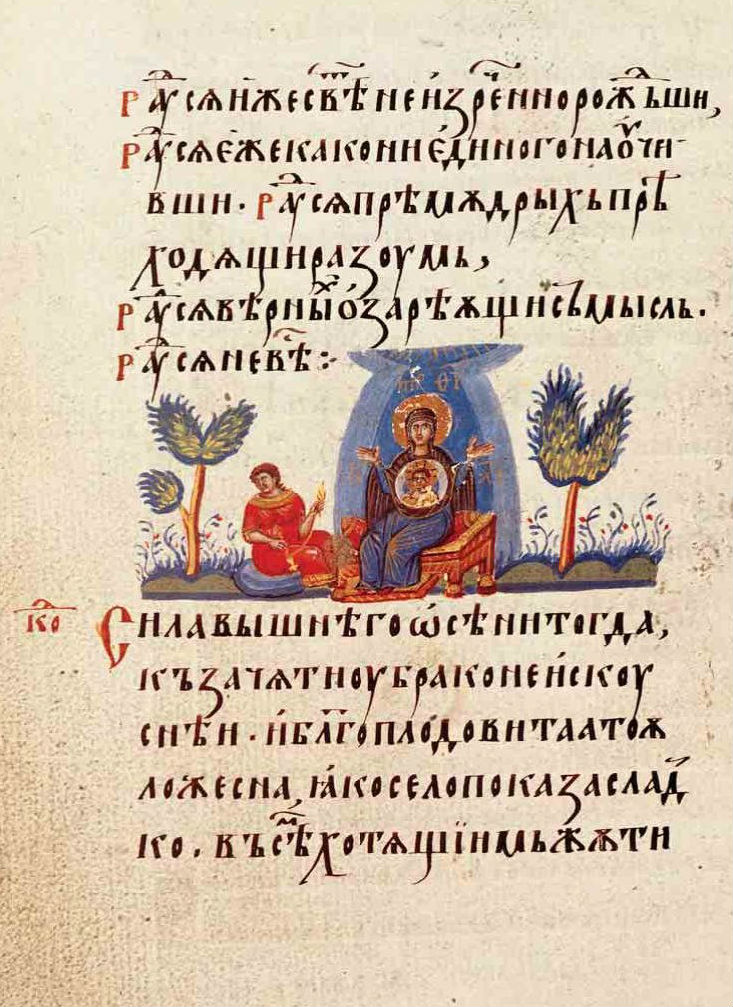 Раⷹсѧ иже свⷮѣ неизреⷱнно рожⷣьши,
Раⷹсѧ еже како ни единого наоучи
вши. Раⷹсѧ прѣмѫдрыхь прѣ
ходѧщи разоумь,
Раⷹсѧ вѣрныⷯ озарѣѫщи съмысль.
Раⷹсѧ невⷭѣ:
МР ѲУ
ко Сила вышнѣго ѡсѣни тогда,
къ зачѧтиоу браконеискоу
снѣи. и блⷢгоплодовитаа тоѫ
ложесна, ꙗко село показа слаⷣ
ко. въсѣⷨ хотѧщіимь жѫти